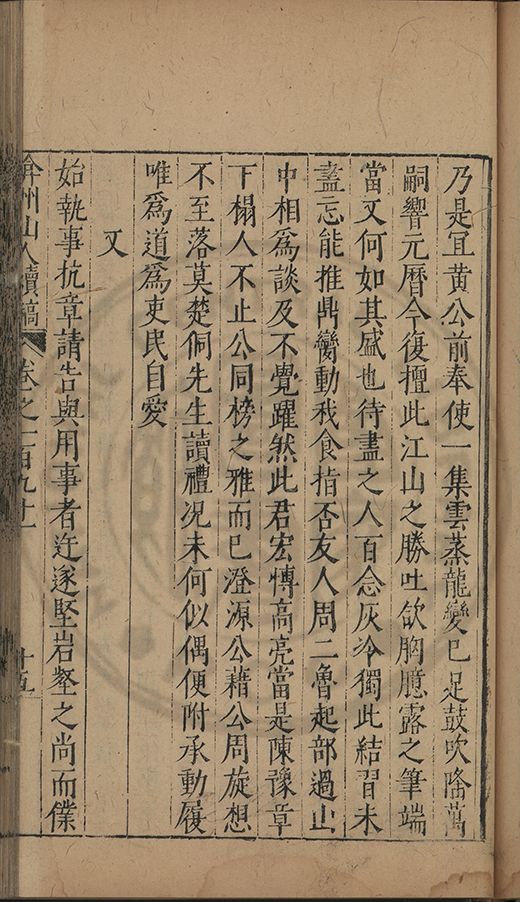 乃是宜黃公前奉使一集雲蒸龍變已足鼓吹隆萬
嗣響元曆今復擅此江山之勝吐欱胸臆露之筆端
當又何如其盛也待盡之人百念灰冷獨此結習未
盡忘能推鼎臠動我食指否友人周二魯起部過山
中相爲談及不覺躍然此君宏博高亮當是陳豫章
下榻人不止公同榜之雅而已澄源公藉公周旋想
不至落莫楚侗先生讀禮况未何似偶便附承動履
唯爲道爲吏民自愛
又
始執事抗章請告與用事者迕遂堅岩壑之尚而僕
弇州山人續稿 卷之一百九十一 十五